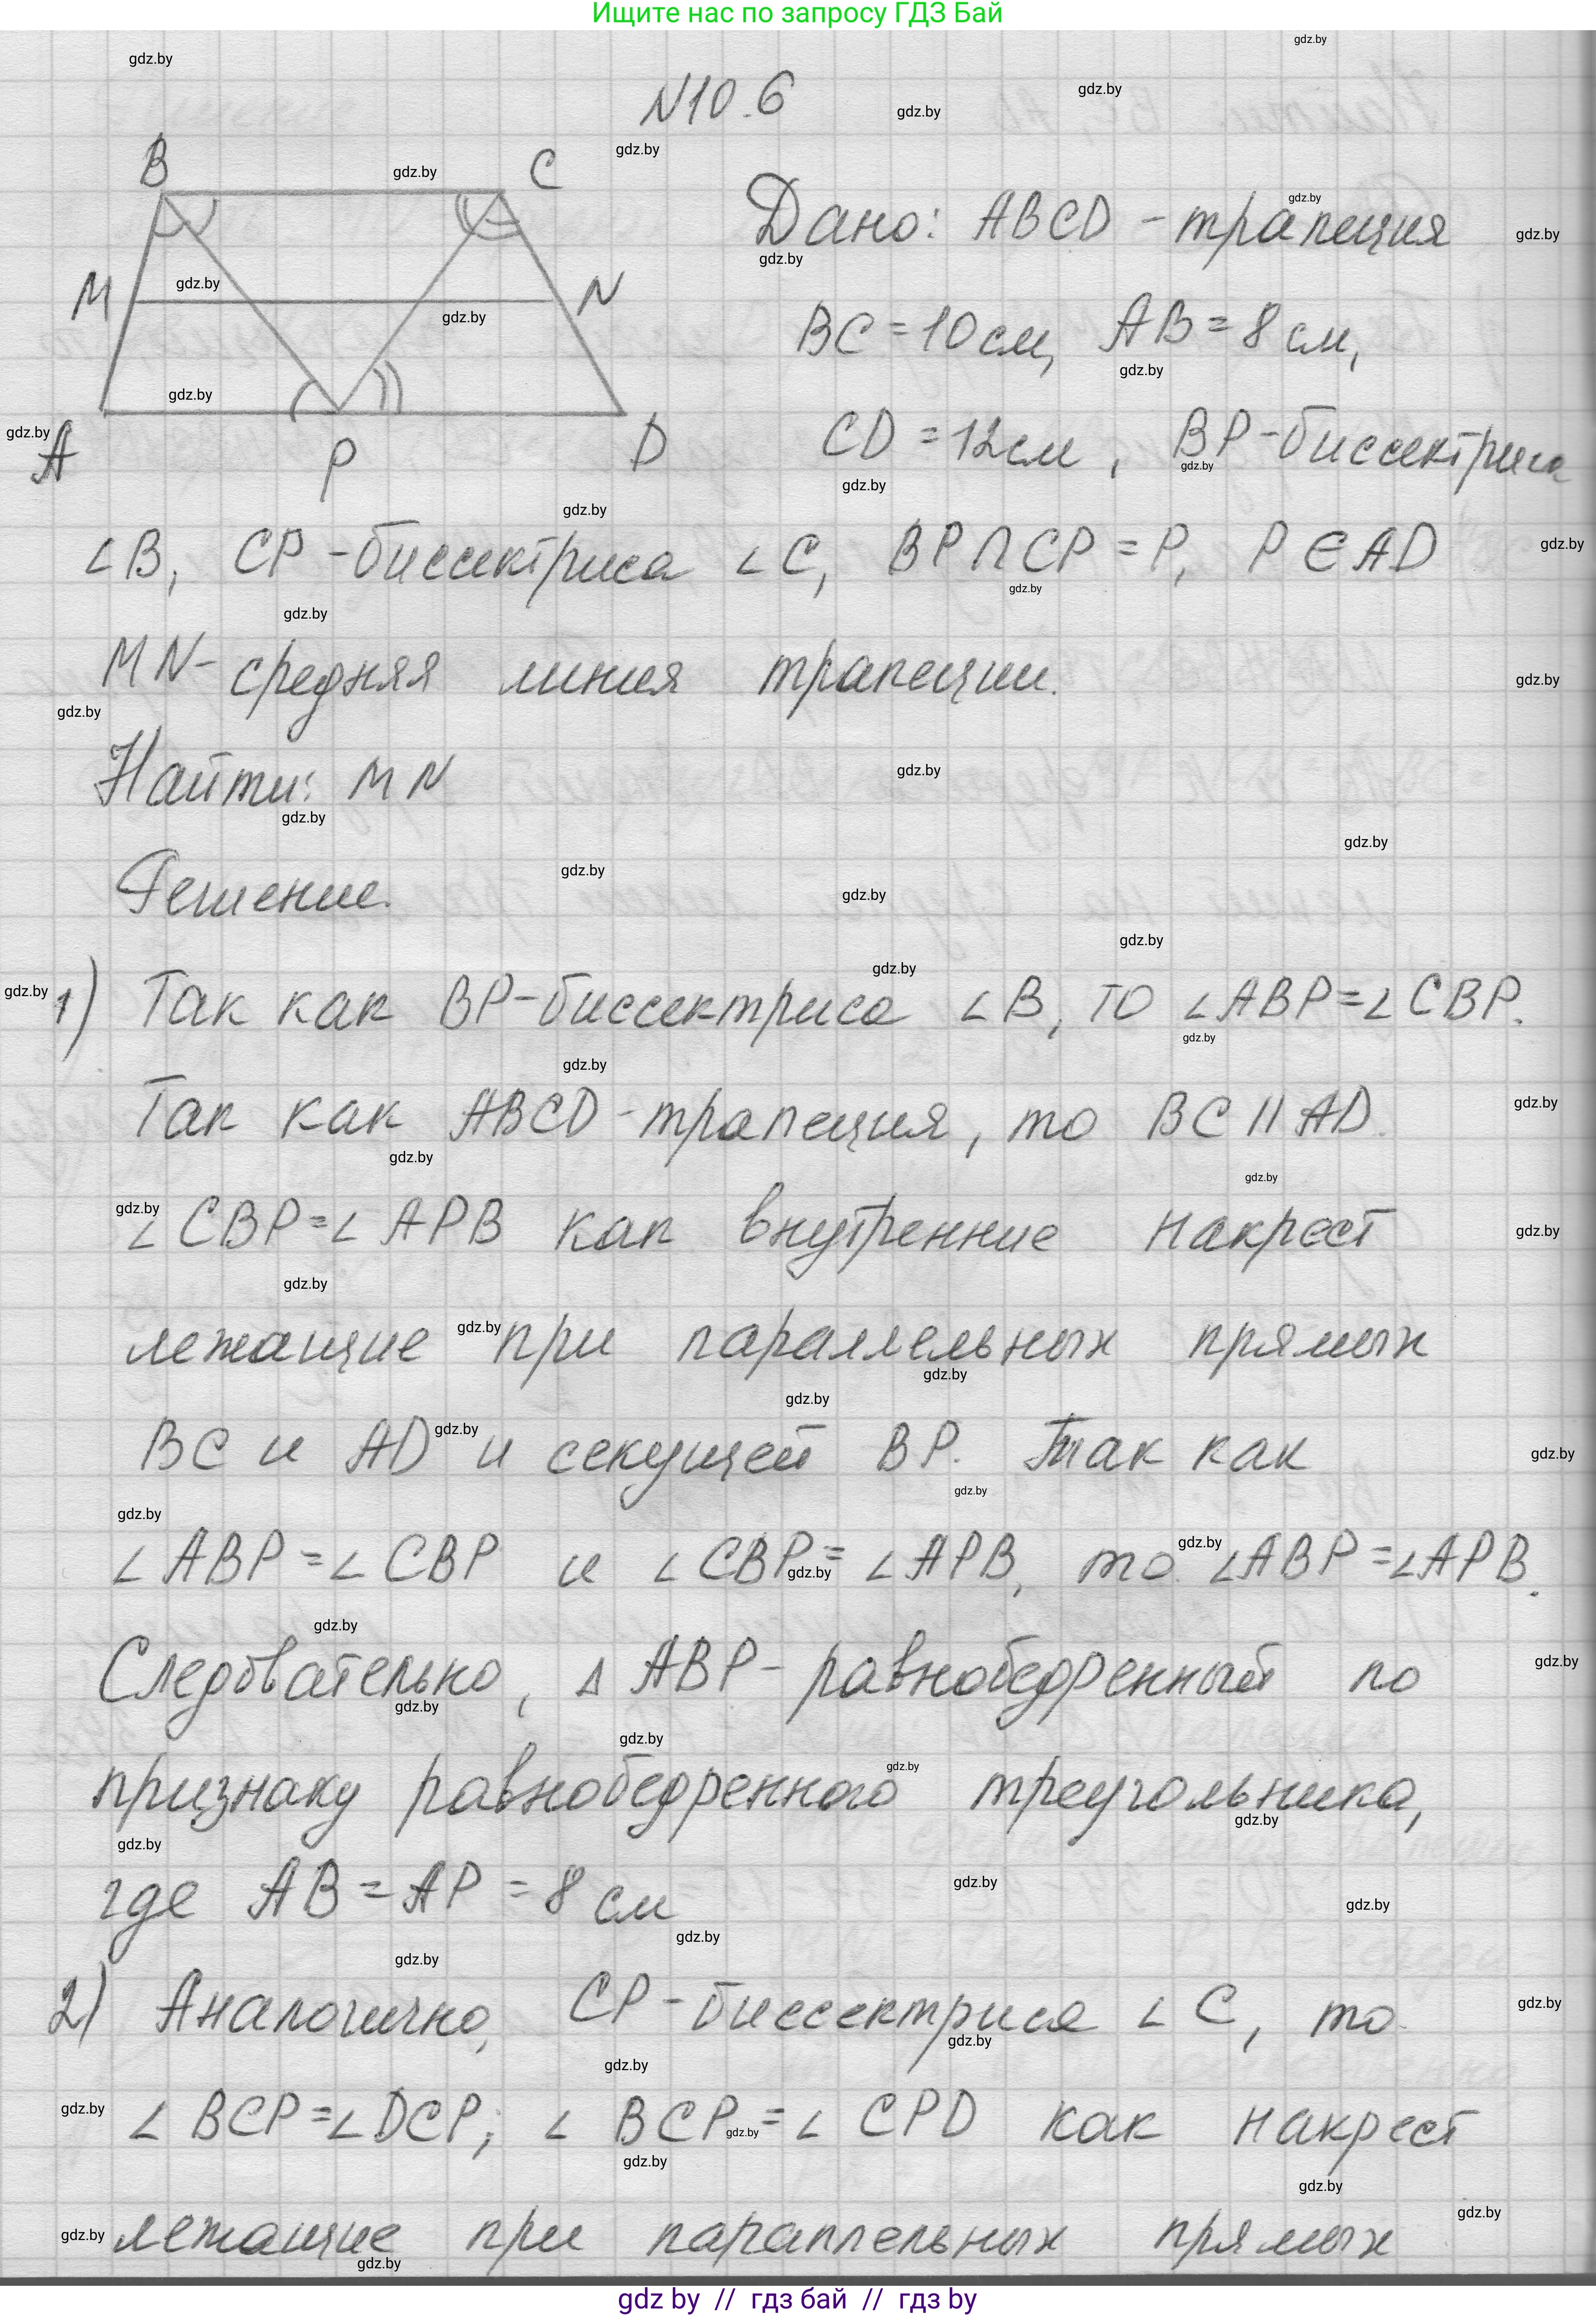 Ищите нас по запросу ГДЗ Бай
N10.6
B C
M N
A P D
Дано: ABCD - трапеция
BC = 10 см, AB = 8 см,
CD = 12 см, BP - биссектриса
∠B, CP - биссектриса ∠C, BP∩CP = P, P ∈ AD
MN - средняя линия трапеции.
Найти: MN
Решение.
1) Так как BP - биссектриса ∠B, то ∠ABP = ∠CBP.
Так как ABCD - трапеция, то BC || AD.
∠CBP = ∠APB как внутренние накрест
лежащие при параллельных прямых
BC и AD и секущей BP. Так как
∠ABP = ∠CBP и ∠CBP = ∠APB, то ∠ABP = ∠APB.
Следовательно, △ABP - равнобедренный по
признаку равнобедренного треугольника,
где AB = AP = 8 см
2) Аналогично, CP - биссектриса ∠C, то
∠BCP = ∠DCP; ∠BCP = ∠CPD как накрест
лежащие при параллельных прямых
gdz by // гдз бай // гдз by